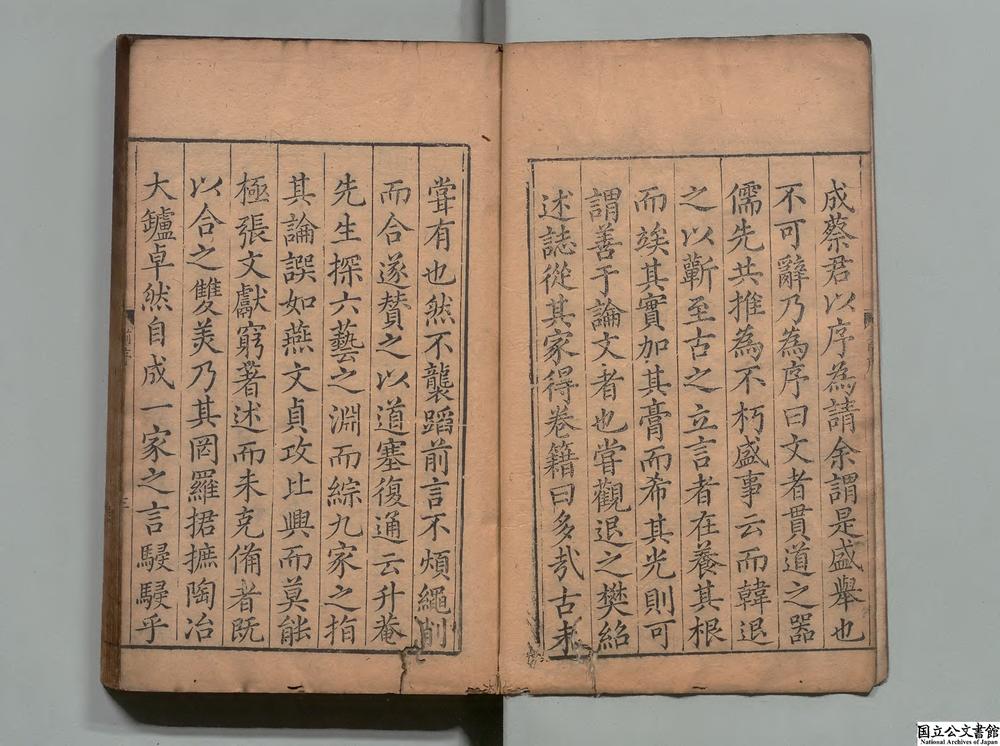 成蔡君以序為請余謂是盛舉也
不可辭乃為序曰文者貫道之器
儒先共推為不朽盛事云而韓退
之以蘄至古之立言者在養其根
而竢其實加其膏而希其光則可
謂善于論文者也嘗觀退之樊紹
述誌從其家得卷籍曰多㢤古未
甞有也然不襲蹈前言不煩繩削
而合遂賛之以道塞復通云升菴
先生探六藝之淵而綜九家之指
其論譔如燕文貞攻比興而莫能
極張文獻窮著述而未克備者既
以合之雙美乃其罔羅捃摭陶冶
大鑪卓然自成一家之言駸駸乎
国立公文書館
National Archives of Japan